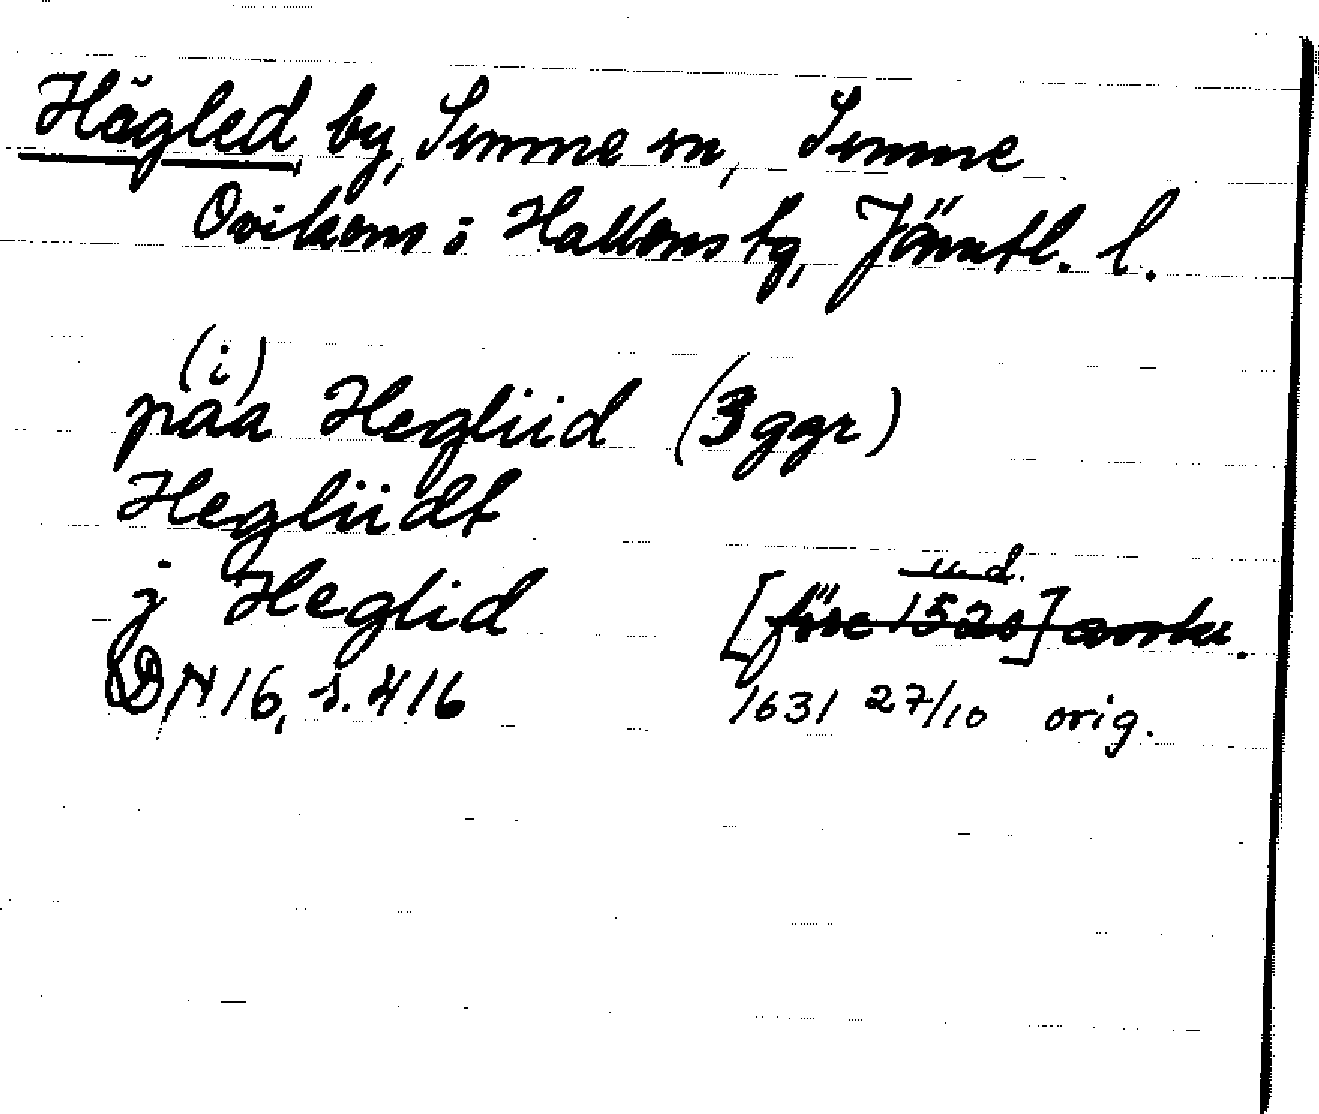 Hägled by, Sunne sn, Sunne
Ovikens o Hallens tg, Jämtl. l.
(i)
paa Hegliid (3 ggr)
Hegliidt
u. d.
j Heglid [före 1520] avskr.
DN 16, s. 416 1631 27/10 orig.